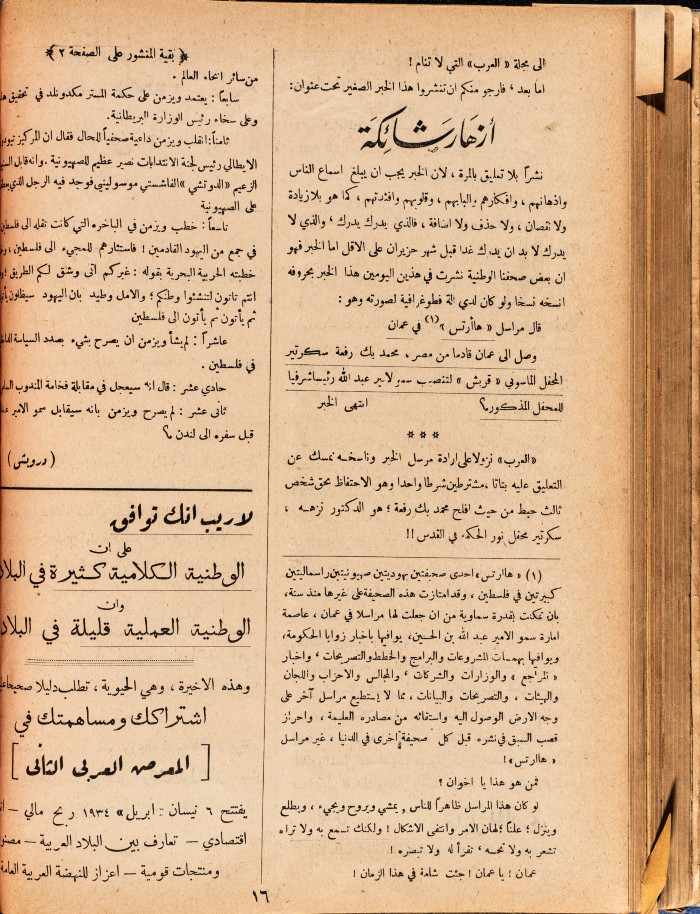 الى مجلة «العرب» التي لا تنام!
اما بعد ، فارجو منكم ان تنشروا هذا الخبر الصغير تحت عنوان:
أزهار شائكة
نشراً بلا تعليق بالمرة ، لان الخبر يجب ان يبلغ اسماع الناس
واذهانهم ، وافكارهم والبابهم ، وقلوبهم وافئدتهم ، كما هو بلا زيادة
ولا نقصان ، ولا حذف ولا اضافة ، فالذي يدرك يدرك ، والذي لا
يدرك لا بد ان يدرك غدا قبل شهر حزيران على الاقل اما الخبر فهو
ان بعض صحفنا الوطنية نشرت في هذين اليومين هذا الخبر بحروفه
انسخه نسخا ولو كان لدي آلة فطوغرافية لصورته وهو :
قال مراسل « هاأرتس » (١) في عمان
وصل الى عمان قادما من مصر ، محمد بك رفعة سكرتير
المحفل الماسوني « قريش » لتنصيب سمو الامير عبد الله رئيسا شرفيا
للمحفل المذكور؟ انتهى الخبر
* * *
«العرب» نزولا على ارادة مرسل الخبر وناسخه نمسك عن
التعليق عليه بتاتا ، مشترطين شرطا واحدا وهو الاحتفاظ بحق شخص
ثالث حبط من حيث افلح محمد بك رفعة ؛ هو الدكتور نزهه ،
سكرتير محفل نور الحكمة في القدس !!
(١) « هاارتس » احدى صحيفتين يهوديتين صهيونيتين راسماليتين
كبيرتين في فلسطين ، وقد امتازت هذه الصحيفة على غيرها منذ سنة ،
بان تمكنت بقدرة سماوية من ان جعلت لها مراسلا في عمان ، عاصمة
امارة سمو الامير عبد الله بن الحسين، يوافيها باخبار زوايا الحكومة،
ويوافيها بمهمات المشروعات والبرامج والخطط والتصريحات ، واخبار
« المراجع » والوزارات والشركات ، والمجالس والاحزاب واللجان
والهيئات ، والتصريحات والبيانات ، مما لا يستطيع مراسل آخر على
وجه الارض الوصول اليه واستقائه من مصادره العليمة ، واحراز
قصب السبق في نشره قبل كل صحيفة اخرى في الدنيا ، غير مراسل
« هاارتس » !
فمن هو هذا يا اخوان ؟
لو كان هذا المراسل ظاهراً للناس , يمشي ويروح ويجيء ، ويطلع
وينزل ؛ علناً ؛ لهان الامر وانتفى الاشكال ! ولكنك تسمع به ولا تراه
تشعر به ولا تحسه ، تقرأ له ولا تبصره !
عمان ! يا عمان ! جئت شامة في هذا الزمان !
﴿ بقية المنشور على الصفحة ٢ ﴾
من سائر انحاء العالم .
سابعاً : يعتمد ويزمن على حكمة المستر مكدونلد في تحقيق
وعلى سخاء رئيس الوزارة البريطانية .
ثامناً : انقلب ويزمن داعية صحفياً للحال فقال ان المركيز
الايطالي رئيس لجنة الانتدابات نصير عظيم للصهيونية . وانه قابل
الزعيم «الدوتشي» الفاشستي موسوليني فوجد فيه الرجل الذي
على الصهيونية
تاسعاً : خطب ويزمن في الباخره التي كانت تقله الى
في جمع من اليهود القادمين ! فاستثارهم للمجيء الى فلسطين ،
خطبته الحربية البحرية بقوله : غيركم أتى وشق لكم الطريق
انتم تانون لتنشئوا وطنكم ؛ والامل وطيد بان اليهود
ثم يأتون ثم يأتون الى فلسطين
عاشراً : لم يشأ ويزمن ان يصرح بشيء بصدد السياسة
في فلسطين .
حادي عشر : قال انه سيعجل في مقابلة فخامة المندوب
ثانى عشر : لم يصرح ويزمن بانه سيقابل سمو الامير
قبل سفره الى لندن ؟
(درويش)
لا ريب انك توافق
على ان
الوطنية الكلامية كثيرة في
وان
الوطنية العملية قليلة في
وهذه الاخيرة ، وهي الحيوية ، تتطلب دليلا
اشتراكك ومساهمتك في
[ المعرض العربى الثانى ]
يفتتح ٦ نيسان «ابريل» ١٩٣٤ ربح مالي —
اقتصادي — تعارف بين البلاد العربية —
ومنتجات قومية — اعزاز للنهضة العربية
١٦